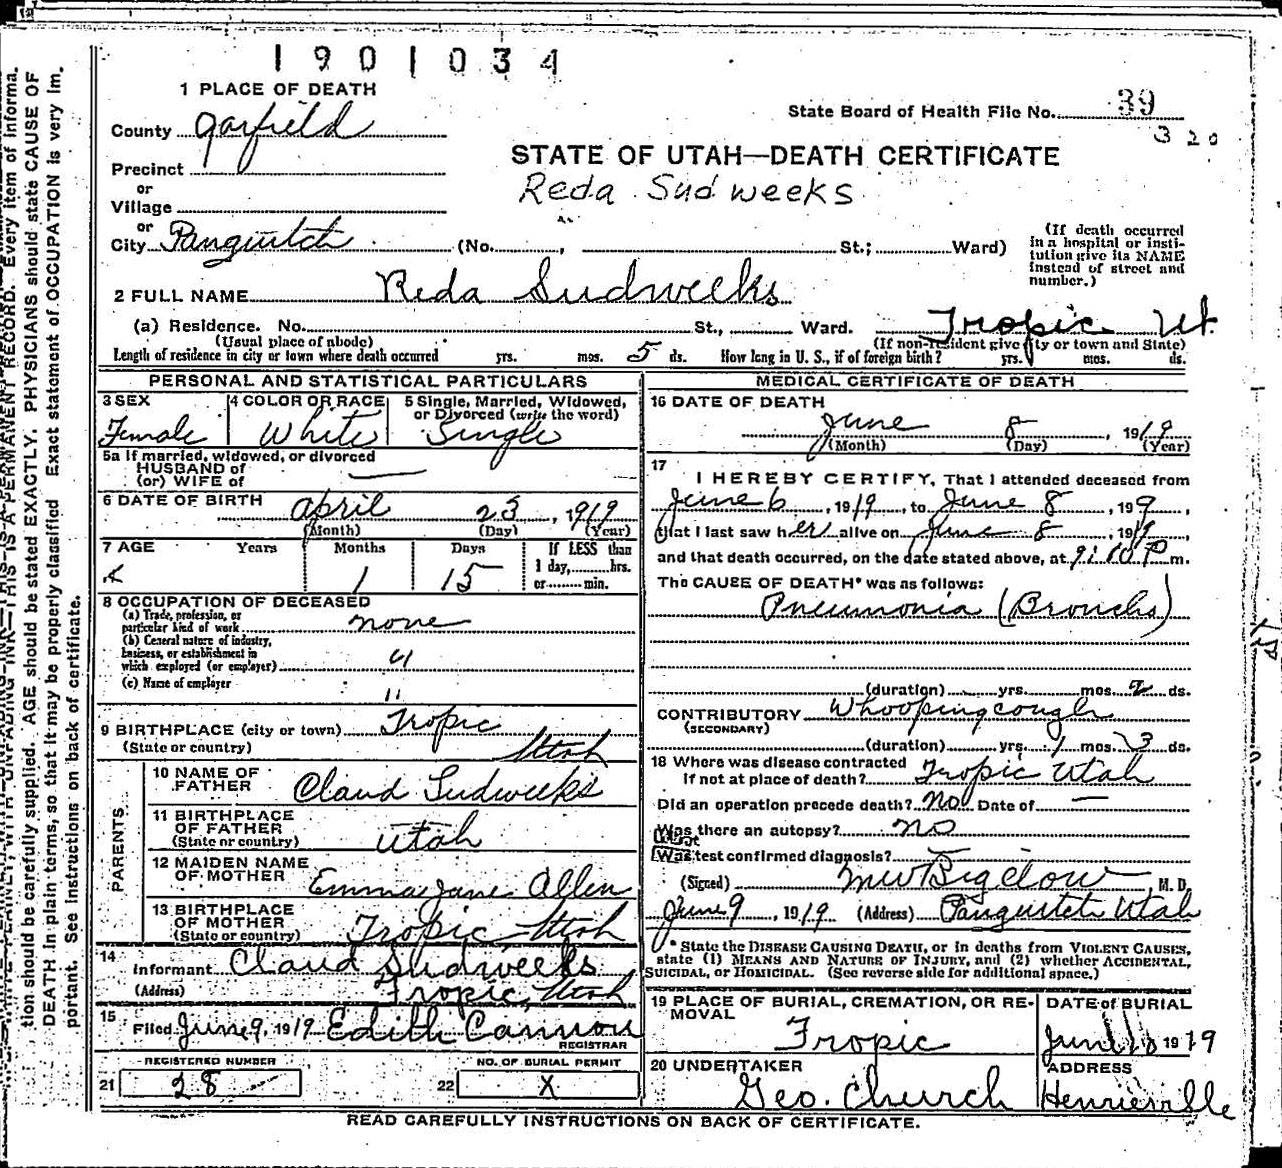 1901034
1 PLACE OF DEATH
State Board of Health File No. 39
320
County Garfield
STATE OF UTAH—DEATH CERTIFICATE
Precinct
Reda Sudweeks
or
Village
or
City Panguitch (No. , St.; Ward)
(If death occurred in a hospital or insti- tution give its NAME instead of street and number.)
2 FULL NAME Reda Sudweeks
(a) Residence. No. St., Ward. Tropic Ut
(Usual place of abode) (If non-resident give city or town and State)
Length of residence in city or town where death occurred yrs. mos. 5 ds. How long in U. S., if of foreign birth? yrs. mos. ds.
PERSONAL AND STATISTICAL PARTICULARS
3 SEX Female
4 COLOR OR RACE White
5 Single, Married, Widowed, or Divorced (write the word) Single
5a If married, widowed, or divorced
HUSBAND of
(or) WIFE of —
6 DATE OF BIRTH April 23, 1919
(Month) (Day) (Year)
7 AGE Years Months Days If LESS than
1 15 1 day, hrs.
or min.
8 OCCUPATION OF DECEASED
(a) Trade, profession, or
particular kind of work none
(b) General nature of industry,
business, or establishment in
which employed (or employer) "
(c) Name of employer "
9 BIRTHPLACE (city or town) Tropic
(State or country) Utah
PARENTS
10 NAME OF FATHER Claud Sudweeks
11 BIRTHPLACE OF FATHER
(State or country) Utah
12 MAIDEN NAME OF MOTHER Emma Jane Allen
13 BIRTHPLACE OF MOTHER
(State or country) Tropic Utah
14 Informant Claud Sudweeks
(Address) Tropic, Utah
15 Filed June 9, 1919 Edith Cannon
REGISTRAR
REGISTERED NUMBER
21 28
NO. OF BURIAL PERMIT
22 X
MEDICAL CERTIFICATE OF DEATH
16 DATE OF DEATH
June 8, 1919
(Month) (Day) (Year)
17 I HEREBY CERTIFY, That I attended deceased from
June 6, 1919, to June 8, 199,
that I last saw her alive on June 8, 1919
and that death occurred, on the date stated above, at 9:10 P m.
The CAUSE OF DEATH* was as follows:
Pneumonia (Broncho)
(duration) yrs. mos. 2 ds.
CONTRIBUTORY Whooping cough
(SECONDARY)
(duration) yrs. 1 mos. 3 ds.
18 Where was disease contracted
if not at place of death? Tropic Utah
Did an operation precede death? No Date of —
Was there an autopsy? no
What test confirmed diagnosis? —
(Signed) M W Bigelow, M. D.
June 9, 1919 (Address) Panguitch Utah
* State the DISEASE CAUSING DEATH, or in deaths from VIOLENT CAUSES,
state (1) MEANS AND NATURE OF INJURY, and (2) whether ACCIDENTAL,
SUICIDAL, or HOMICIDAL. (See reverse side for additional space.)
19 PLACE OF BURIAL, CREMATION, OR RE-
MOVAL
Tropic
DATE of BURIAL
June 10 1919
20 UNDERTAKER
Geo. Church
ADDRESS
Henrieville
READ CAREFULLY INSTRUCTIONS ON BACK OF CERTIFICATE.
tion should be carefully supplied. AGE should be stated EXACTLY. PHYSICIANS should state CAUSE OF
DEATH in plain terms, so that it may be properly classified. Exact statement of OCCUPATION is very im-
portant. See instructions on back of certificate.